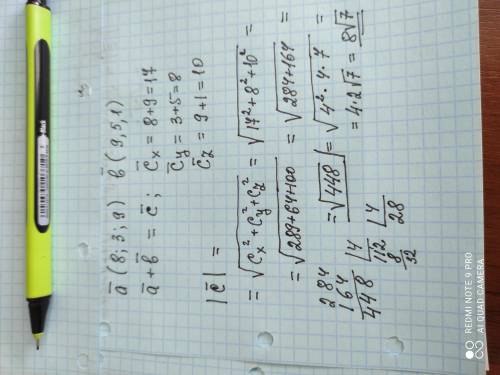 a̅ (8; 3; 9) b̅ (9, 5, 1)
a̅ + b̅ = c̅ ; c̅x = 8+9=17
c̅y = 3+5=8
c̅z = 9+1=10
|c̅| =
= √(Cx² + Cy² + Cz²) = √(17² + 8² + 10²) =
= √(289+64+100) = √(284+164) =
= √448 = √(4²·4·7) =
= 4·2√7 = 8√7
284
164
448 4
112 4
8 28
32
REDMI NOTE 9 PRO
AI QUAD CAMERA